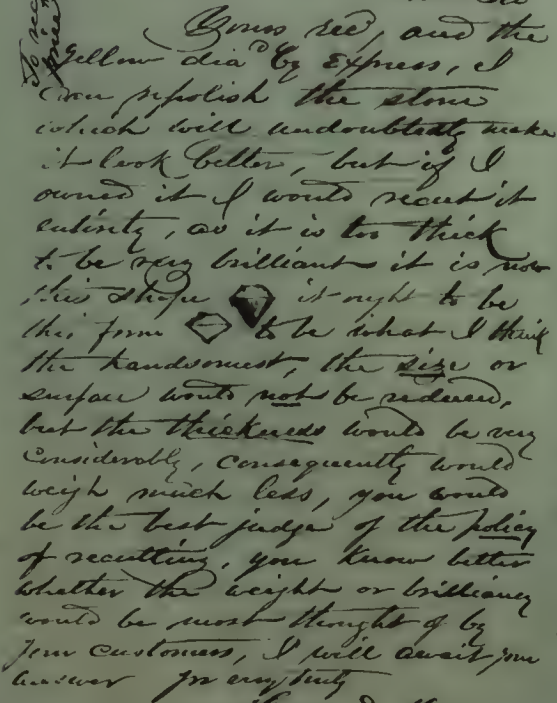 Yours rec'd, and the
Yellow dia'd by Express, I
can repolish the stone
which will undoubtedly make
it look better, but if I
owned it I would recut it
entirely, as it is too thick
to be very brilliant it is now
this shape it ought to be
this form to be what I think
the handsomest, the size or
surface would not be reduced,
but the thickness would be very
considerably, consequently would
weigh much less, you would
be the best judge of the policy
of recutting, you know better
whether the weight or brilliancy
would be most thought of by
your customers, I will await your
answer